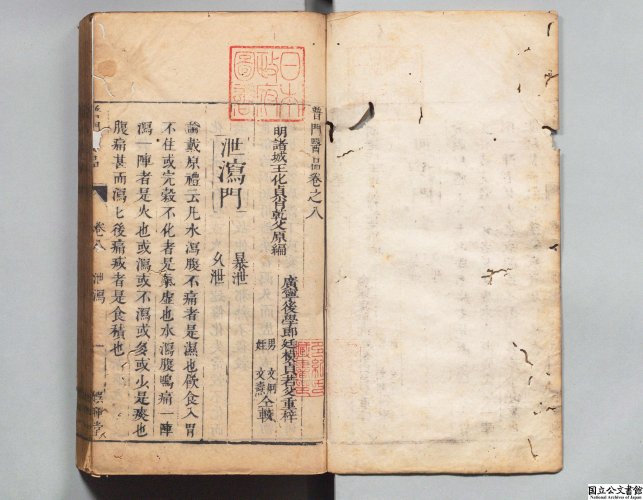 日本政府圖書
普門醫品卷之八
明諸城王化貞肖乾父原編
廣寧後學郎廷模貞若父重梓
男 文炯
姪 文燾
仝較
泄瀉門
暴泄
久泄
論戴原禮云凡水瀉腹不痛者是濕也飲食入胃
不住或完穀不化者是氣虛也水瀉腹鳴痛一陣
瀉一陣者是火也或瀉或不瀉或多或少是痰也
腹痛甚而瀉匕後痛减者是食積也
卷八 泄瀉
国立公文書館
National Archives of Japan